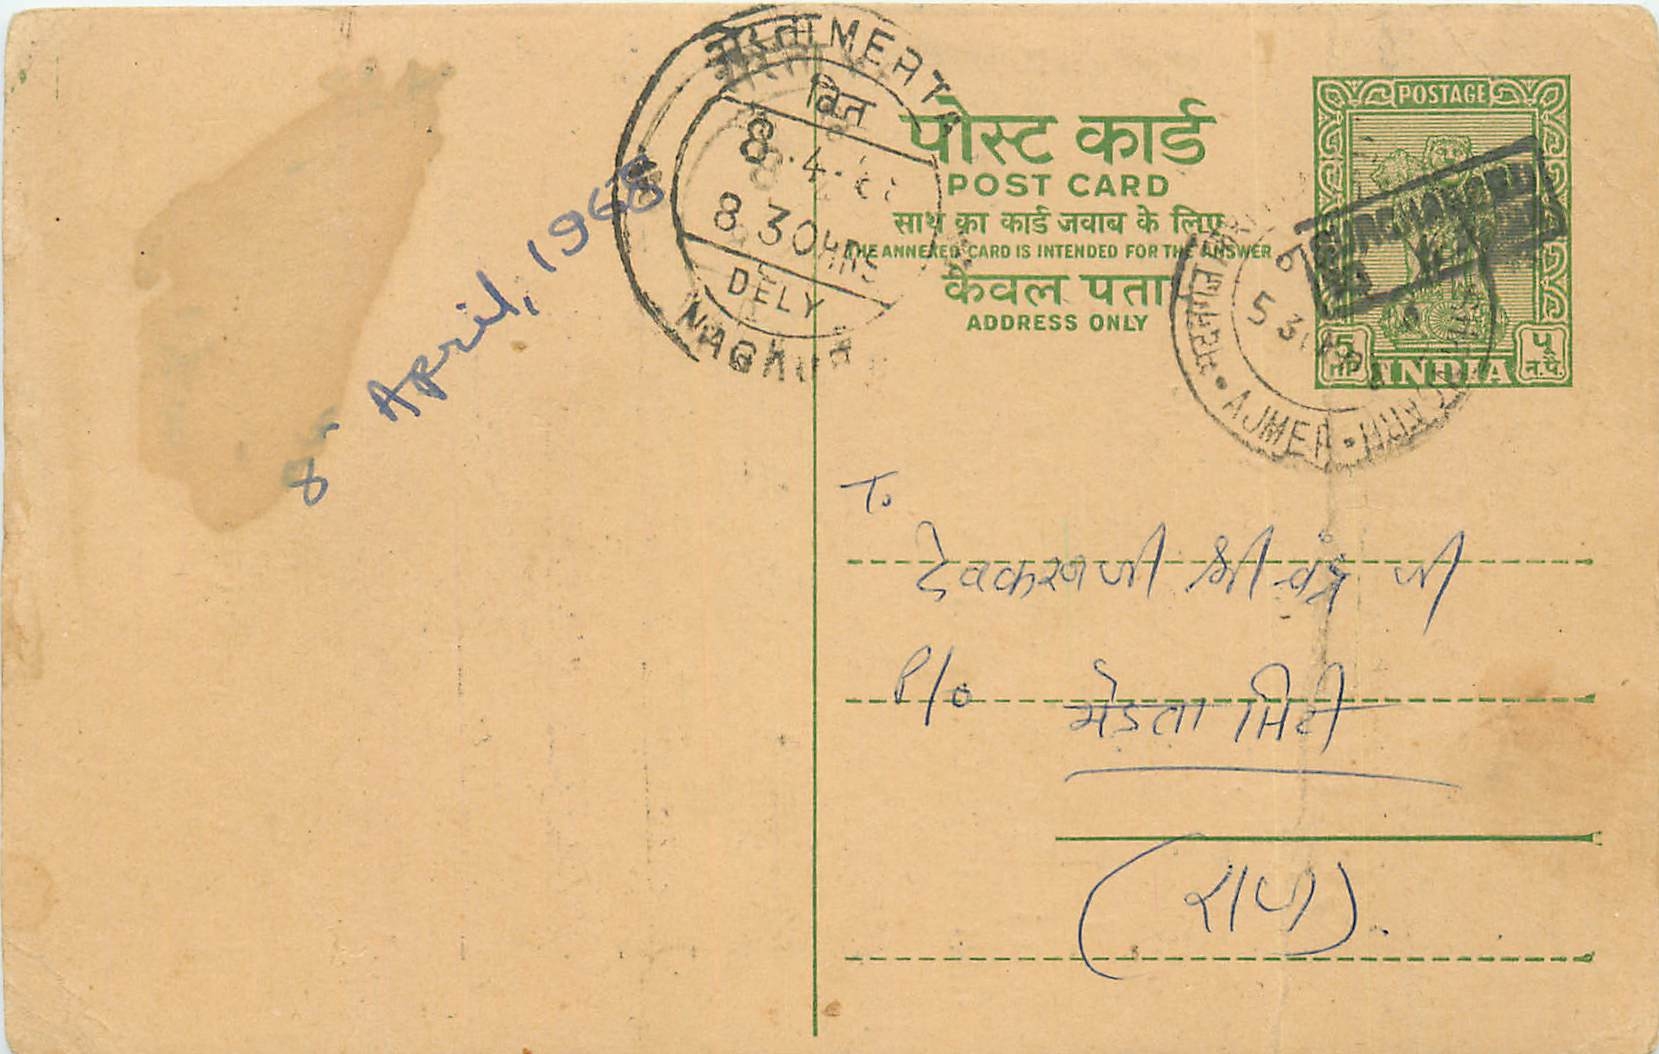 मेड़ता MERTA
वित
8.4.
8 30HRS
DELY
NAGAUR
8 April, 1968
पोस्ट कार्ड
POST CARD
साथ का कार्ड जवाब के लिए
THE ANNEXED CARD IS INTENDED FOR THE ANSWER
केवल पता
ADDRESS ONLY
POSTAGE
5 NP
INDIA
५ न.पै.
मदनगंज
5 30
AJMER
To
देवकरणजी श्री चंद्र जी
P/o
मेडता सिटी
(राज).